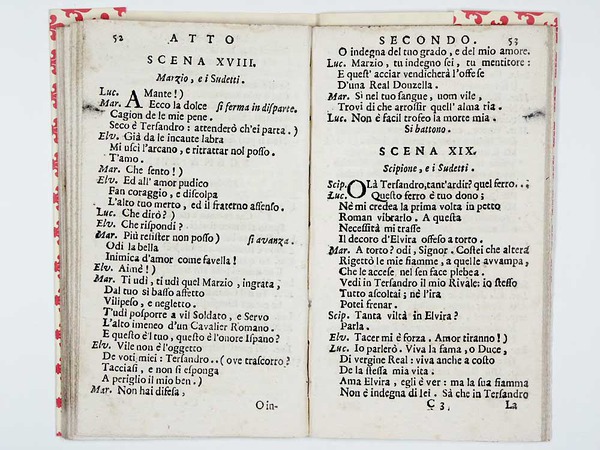 52 ATTO
SCENA XVIII.
Marzio, e i Sudetti.
Luc. AMante!)
Mar. Ecco la dolce si ferma in disparte.
Cagion de le mie pene.
Seco è Tersandro: attenderò ch'ei parta.)
Elv. Già da le incaute labra
Mi uscì l'arcano, e ritrattar nol posso.
T'amo.
Mar. Che sento!)
Elv. Ed all' amor pudico
Fan coraggio, e discolpa
L'alto tuo merto, ed il fraterno assenso.
Luc. Che dirò?)
Elv. Che rispondi?
Mar. Più resister non posso) si avanza.
Odi la bella
Inimica d'amor come favella!
Elv. Aimè!)
Mar. Ti udì, ti udì quel Marzio, ingrata,
Dal tuo sì basso affetto
Vilipeso, e negletto.
T'udì posporre a vil Soldato, e Servo
L'alto imeneo d'un Cavalier Romano.
E questo è'l tuo, questo è l'onore Ispano?
Elv. Vile non è l'oggetto
De voti miei: Tersandro.. (ove trascorro?
Tacciasi, e non si esponga
A periglio il mio ben.)
Mar. Non hai difesa,
O in-
SECONDO. 53
O indegna del tuo grado, e del mio amore.
Luc. Marzio, tu indegno sei, tu mentitore:
E quest' acciar vendicherà l'offese
D'una Real Donzella.
Mar. Sì nel tuo sangue, uom vile,
Trovi di che arrossir quell' alma ria.
Luc. Non è facil trofeo la morte mia.
Si battono.
SCENA XIX.
Scipione, e i Sudetti.
Scip. OLà Tersandro, tant'ardir? quel ferro...
Luc. Questo ferro è tuo dono;
Nè mi credea la prima volta in petto
Roman vibrarlo. A questa
Necessità mi trasse
Il decoro d'Elvira offeso a torto.
Mar. A torto? odi, Signor. Costei che altera
Rigettò le mie fiamme, a quelle avvampa,
Che le accese nel sen face plebea.
Vedi in Tersandro il mio Rivale: io stesso
Tutto ascoltai; nè l'ira
Potei frenar.
Scip. Tanta viltà in Elvira?
Parla.
Elv. Tacer mi è forza. Amor tiranno!)
Luc. Io parlerò. Viva la fama, o Duce,
Di vergine Real: viva anche a costo
De la stessa mia vita.
Ama Elvira, egli è ver: ma la sua fiamma
Non è indegna di lei. Sà che in Tersandro
C 3, La